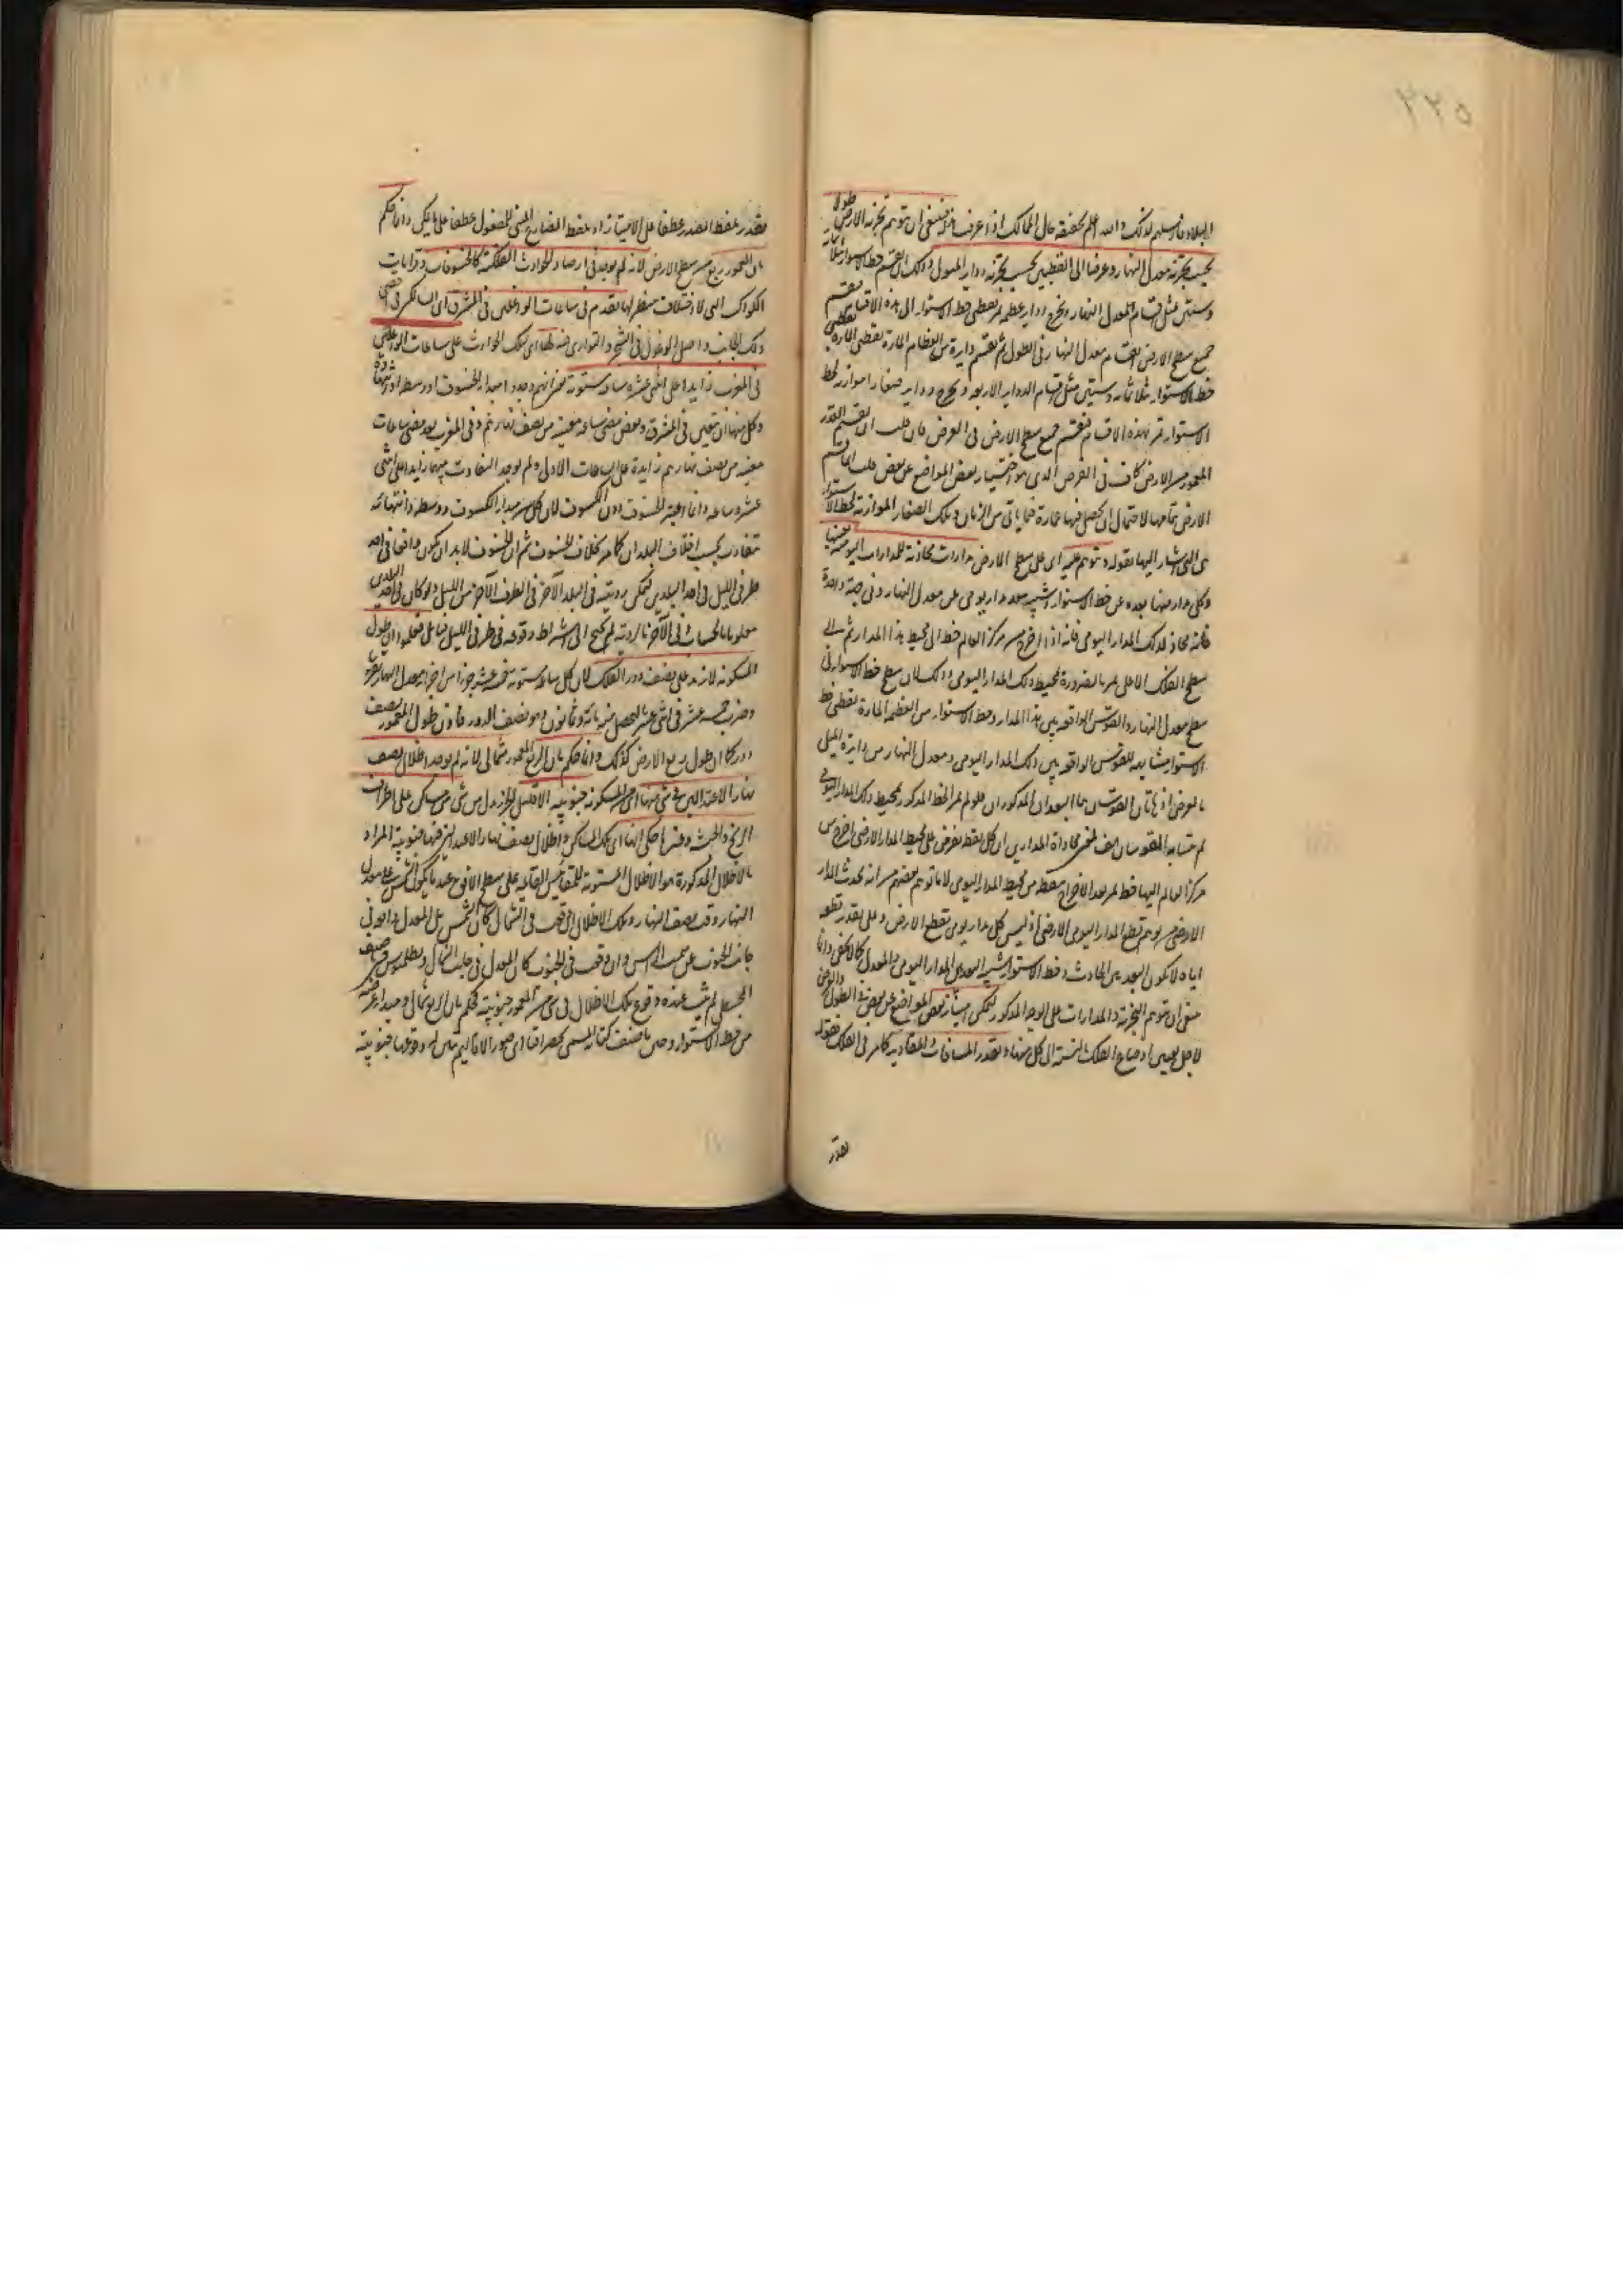 ٢٢٥
البلاد فانه سلم لذلك والله اعلم بحقيقة حال الممالك اذا عرفت هذا فينبغى ان تتوهم تجزئة الارض طولا
بحسب تجزئة معدل النهار وعرضا الى القطبين بحسب تجزئة دوائر الميول وذلك ان يقسم خط الاستواء ثلثمائة
وستين مثل اقسام المعدل النهار ويخرج دوائر عظيمة تمر بقطبى خط الاستواء الى هذه الاقسام فينقسم
جميع سطح الارض باقسام معدل النهار فى الطول ثم يقسم دائرة من العظام المارة بقطبى
خط الاستواء ثلاثمائة وستين مثل اقسام الدوائر الاربعة ويخرج دوائر صغارا موازية لخط
الاستواء تمر بهذه الاقسام فينقسم جميع سطح الارض فى العرض فان قلت ان تقسيم القدر
المعمور من الارض كاف فى الغرض الذى هو اختيار بعض المواضع عن بعض قلت انما قسم
الارض بتمامها لاحتمال ان يحصل فيها عمارة فيما ياتى من الزمان وتلك الصغار الموازية لخط الاستواء
هى التى اشار اليها بقوله وتتوهم عليه اى على سطح الارض مدارات محاذية للمدارات اليومية
وكل مدار منها بعده عن خط الاستواء شبيه ببعد مدار يومى عن معدل النهار وفى جهة واحدة
فانه محاذ لذلك المدار اليومى فانه اذا اخرج من مركز العالم خط الى محيط هذا المدار ثم الى
سطح الفلك الاعلى يمر بالضرورة بمحيط ذلك المدار اليومى وذلك لان سطح خط الاستواء فى
سطح معدل النهار والقوس الواقعة بين هذا المدار وخط الاستواء من العظيمة المارة بقطبى خط
الاستواء مشابهة للقوس الواقعة بين ذلك المدار اليومى ومعدل النهار من دائرة الميل
بالعرض اذ هاتان القوسان هما البعدان المذكوران فلو لم يمر الخط المذكور بمحيط ذلك المدار اليومى
لم يتشابه القوسان فمعنى محاذاة المدارين ان كل نقطة تفرض على محيط المدار الارضى اخرج من
مركز العالم اليها خط يمر بعد الاخراج بنقطة من محيط المدار اليومى لا ما توهم بعضهم من انه يحدث المدار
الارضى من توهم قطع المدار اليومى الارض اذ ليس كل مدار يومى يقطع الارض وعلى تقدير قطعه
اياه لا يكون البعد بين الحادث وخط الاستواء شبيه البعد بين المدار اليومى والمعدل كما لا يخفى وانما
ينبغى ان تتوهم التجزئة والمدارات على الوجه المذكور ليمكن امتياز بعض المواضع عن بعض فى الطول والعرض
لاجل تعيين اوضاع الفلك بالنسبة الى كل منها وتقدر المسافات والمقادير كما مر فى الفلك فقوله
تقدر
تقدر بلفظ المصدر عطفا على الامتياز او بلفظ المضارع المبنى للمفعول عطفا على يمكن وانما حكم
بان المعمور ربع من سطح الارض لانه لم يوجد فى ارصاد الحوادث الفلكية كالخسوفات وقرانات
الكواكب التى لا اختلاف منظر لها تقدم فى ساعات الواغلين فى المشرق اى الساكنين فى اقصى
ذلك الجانب واصل الوغول فى الشجر والتوارى فيه لها اى لتلك الحوادث على ساعات الواغلين
فى المغرب زايدا على اثنى عشرة ساعة مستوية يعنى انهم وجدوا مبدا الخسوف او وسطه او انتهائه
وكل منها ان تعين فى المشرق وبعض مضى ساعة معينة من نصف نهارهم وفى المغرب بعد مضى ساعات
معينة من نصف نهارهم زايدة على الساعات الاول ولم يوجد التفاوت بينهما زايدا على اثنى
عشرة ساعة وانما اعتبر الخسوف دون الكسوف لان كل من مبدا الكسوف ووسطه وانتهائه
متفاوت بحسب اختلاف البلدان كما مر بخلاف الخسوف ثم ان الخسوف لابد ان يكون واقعا فى احد
طرفى الليل فى احد البلدين ليمكن رؤيته فى البلد الآخر فى الطرف الآخر من الليل ولو كان فى احد البلدين
معلوما بالحساب وفى الآخر بالرؤية لم يحتج الى اشتراط وقوعه فى طرفى الليل فتامل فعلموا ان طول
المسكونة لا يزيد على نصف دور الفلك لان كل ساعة مستوية خمسة عشر جزءا من اجزاء معدل النهار
وضرب خمسة عشر فى اثنى عشر يحصل منه مائة وثمانون وهو نصف الدور فاذن طول المعمور نصف
دور كما ان طول ربع الارض كذلك وانما حكم بان الربع المعمور شمالى لانه لم يوجد اظلال نصف
نهار الاعتدالين فى شئ منها اى من المسكونة جنوبية الا قليل من مساكن على اطراف
الزنج والحبشة وغيرها حكى انها اى تلك المساكن اظلال نصف نهار الاعتدالين فيها جنوبية المراد
بالاظلال المذكورة هو الاظلال المستوية للمقاييس القائمة على سطح الافق عند ما يكون الشمس على معدل
النهار وقت نصف النهار وتلك الاظلال ان وقعت فى الشمال كان الشمس بل المعدل هو فى
جانب الجنوب عن سمت الراس وان وقعت فى الجنوب كان المعدل فى جانب الشمال وبطلميوس حين صنف
المجسطى لم يثبت عنده وقوع تلك الاظلال فى شئ من المعمور جنوبية فحكم بان الربع شمالى ومبدا عرضه
من خط الاستواء وحين ما صنف كتابه المسمى بجغرافيا اى صور الاقاليم تبين له وقوعها جنوبية